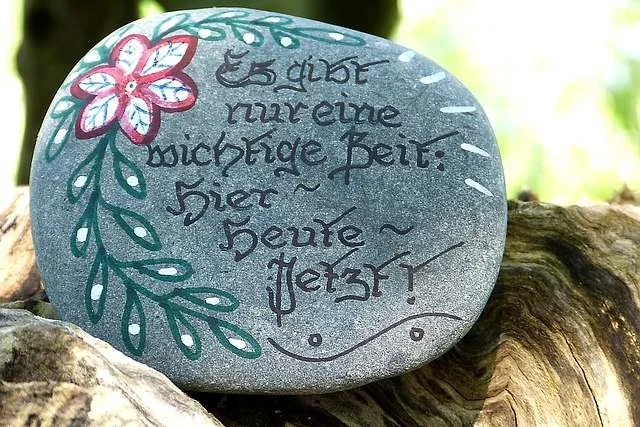 Es gibt
nur eine
wichtige Zeit:
Hier ~
Heute ~
Jetzt!